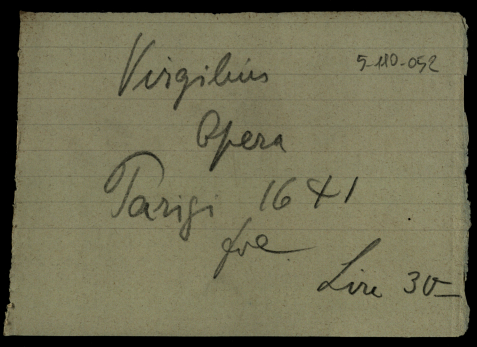 Virgilius
5-110-052
Opera
Parigi 1641
foe
Lire 30–